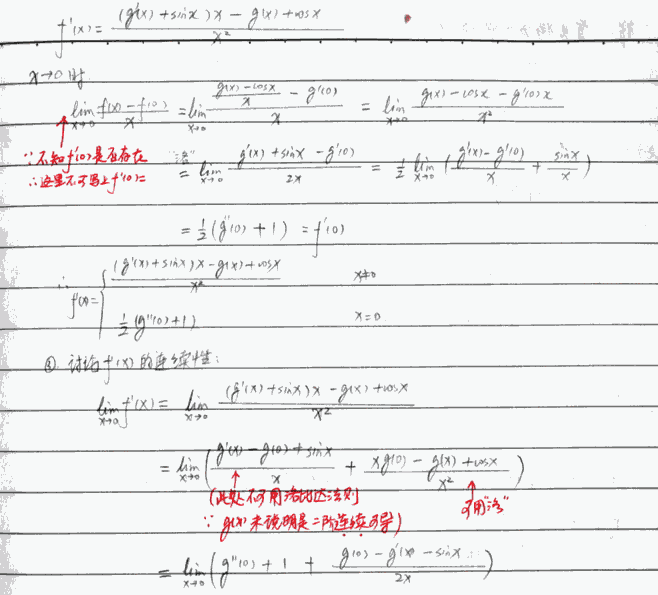 f'(x) = ((g'(x)+sinx)x - g(x)+cosx)/x²
x→0时
lim_{x→0} (f(x)-f(0))/x = lim_{x→0} ((g(x)-cosx)/x - g'(0))/x = lim_{x→0} (g(x)-cosx-g'(0)x)/x²
∵不知f'(0)是否存在
∴这里不可写上f'(0)=
"洛" = lim_{x→0} (g'(x)+sinx-g'(0))/2x = 1/2 lim_{x→0} ((g'(x)-g'(0))/x + sinx/x)
= 1/2 (g''(0)+1) = f'(0)
∴ f'(x) = { ((g'(x)+sinx)x-g(x)+cosx)/x² x≠0
1/2 (g''(0)+1) x=0
③ 讨论f'(x)的连续性:
lim_{x→0} f'(x) = lim_{x→0} ((g'(x)+sinx)x-g(x)+cosx)/x²
= lim_{x→0} ((g'(x)-g'(0)+sinx)/x + (xg'(0)-g(x)+cosx)/x²)
(此处不可用洛比达法则
可用"洛"
∵ g(x)未说明是二阶连续可导)
= lim_{x→0} (g''(0)+1 + (g'(0)-g'(x)-sinx)/2x)